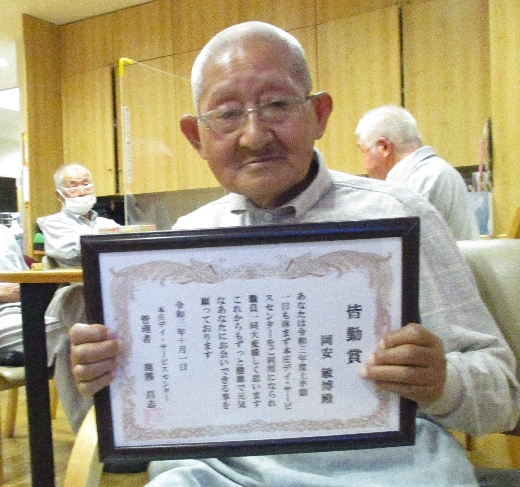 皆勤賞
岡安 敏博殿
あなたは令和二年度上半期
一日も休まず本庄デイ・サービ
スセンターをご利用になられ
職員一同大変嬉しく思います
これからもずっと健康で元気
なあなたにお会いできる事を
願っております
令和二年十月一日
本庄デイ・サービスセンター
管理者